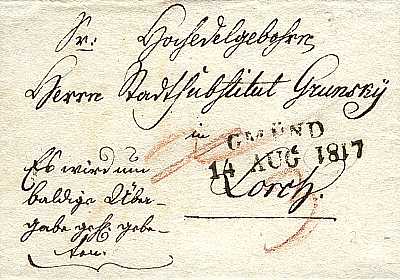 Sr: Hochedelgebohrn
Herrn Stadtsubstitut Grunsky
in
GMÜND
14 AUG 1817
Lorch.
Es wird um
baldige Über-
gabe geh. gebe-
ten.